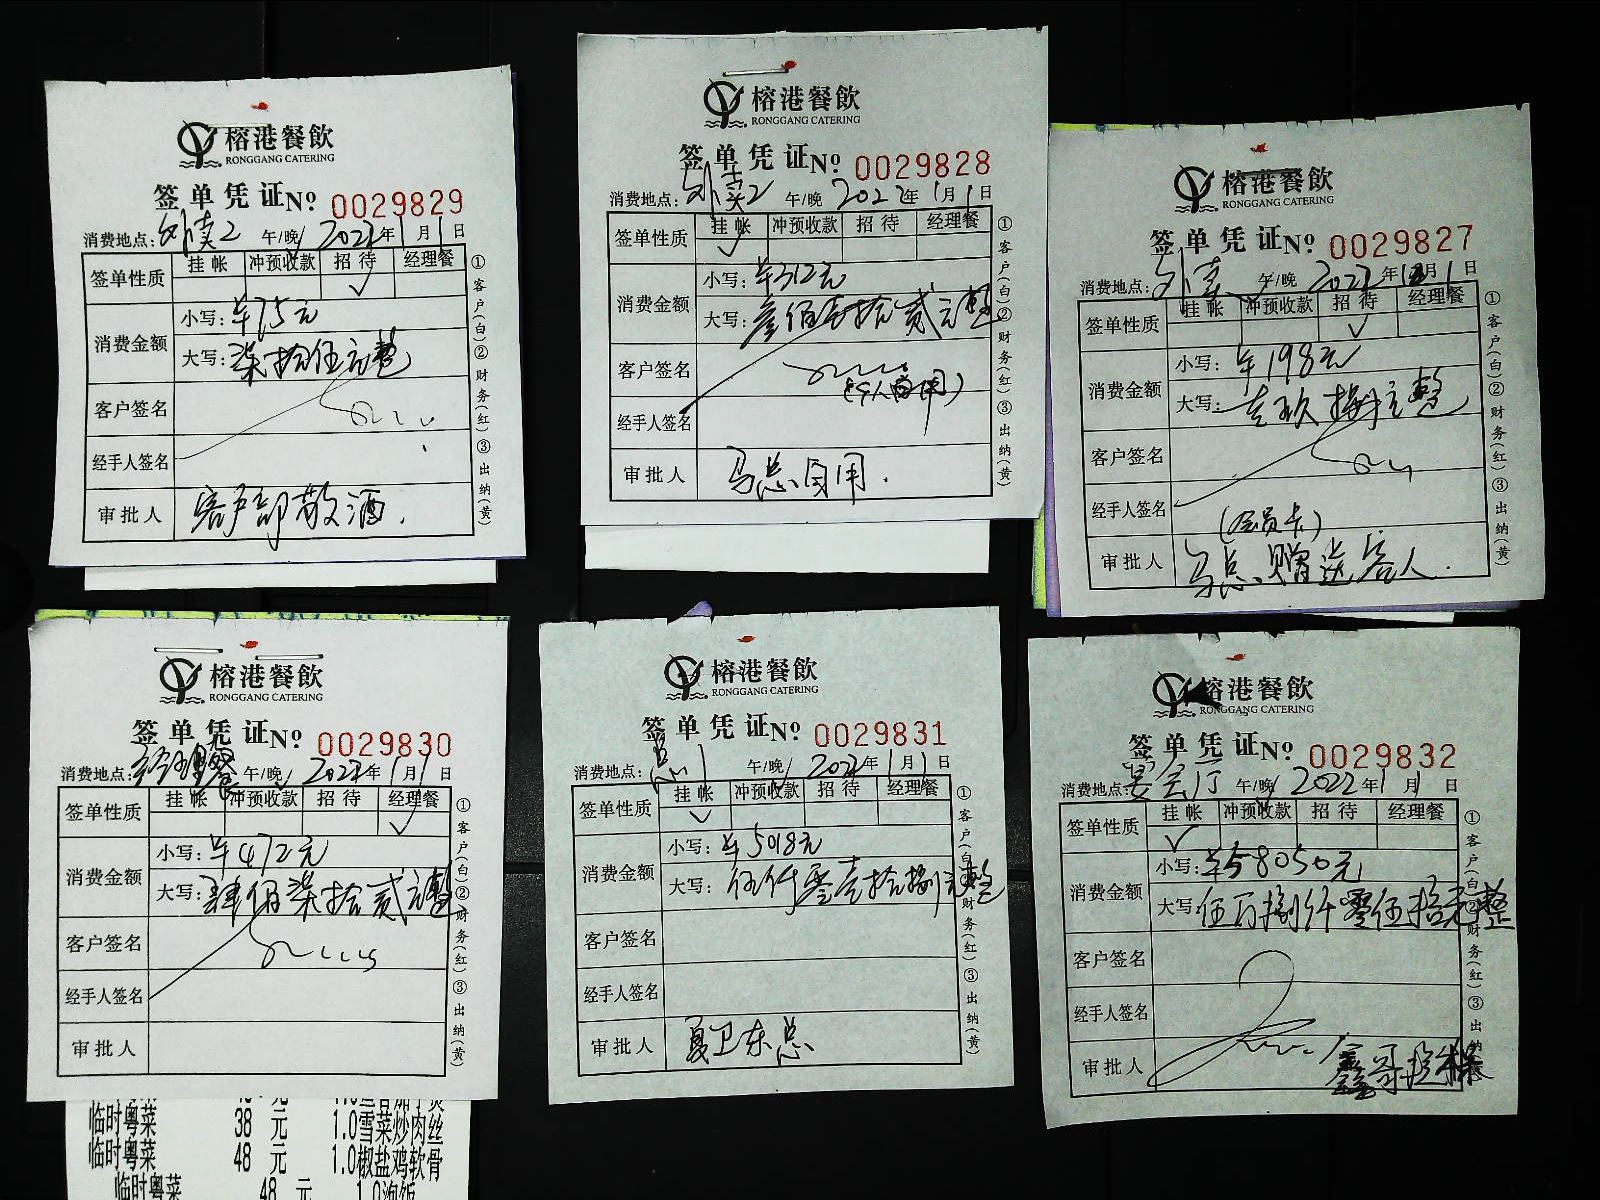 榕港餐飲
RONGGANG CATERING
签单凭证 No 0029829
消费地点: 外卖2 午/晚 2022年1月1日
签单性质 挂帐 冲预收款 招待 经理餐
✓
消费金额 小写: ¥75元
大写: 柒拾伍元整
客户签名
经手人签名
审批人 客户部散酒.
①客户(白)②财务(红)③出纳(黄)
榕港餐飲
RONGGANG CATERING
签单凭证 No 0029828
消费地点: 外卖2 午/晚 2022年1月1日
签单性质 挂帐 冲预收款 招待 经理餐
✓
消费金额 小写: ¥312元
大写: 叁佰壹拾贰元整
客户签名
(个人自用)
经手人签名
审批人 马总自用.
①客户(白)②财务(红)③出纳(黄)
榕港餐飲
RONGGANG CATERING
签单凭证 No 0029827
消费地点: 外卖 午/晚 2022年1月1日
签单性质 挂帐 冲预收款 招待 经理餐
✓
消费金额 小写: ¥198元
大写: 壹玖捌元整
客户签名
经手人签名
(会员卡)
审批人 马总赠送客人.
①客户(白)②财务(红)③出纳(黄)
榕港餐飲
RONGGANG CATERING
签单凭证 No 0029830
消费地点: 经理餐 午/晚 2022年1月1日
签单性质 挂帐 冲预收款 招待 经理餐
✓
消费金额 小写: ¥472元
大写: 肆佰柒拾贰元整
客户签名
经手人签名
审批人
①客户(白)②财务(红)③出纳(黄)
临时粤菜 38 元 1.0雪菜炒肉丝
临时粤菜 48 元 1.0椒盐鸡软骨
临时粤菜 48 元 1.0泡饭
榕港餐飲
RONGGANG CATERING
签单凭证 No 0029831
消费地点: 午/晚 2022年1月1日
签单性质 挂帐 冲预收款 招待 经理餐
✓
消费金额 小写: ¥5018元
大写: 伍仟零壹拾捌元整
客户签名
经手人签名
审批人 夏卫东总
①客户(白)②财务(红)③出纳(黄)
榕港餐飲
RONGGANG CATERING
签单凭证 No 0029832
消费地点: 宴会厅 午/晚 2022年1月1日
签单性质 挂帐 冲预收款 招待 经理餐
✓
消费金额 小写: ¥58050元
大写: 伍万捌仟零伍拾元整
客户签名
经手人签名
审批人 鑫哥担保
①客户(白)②财务(红)③出纳